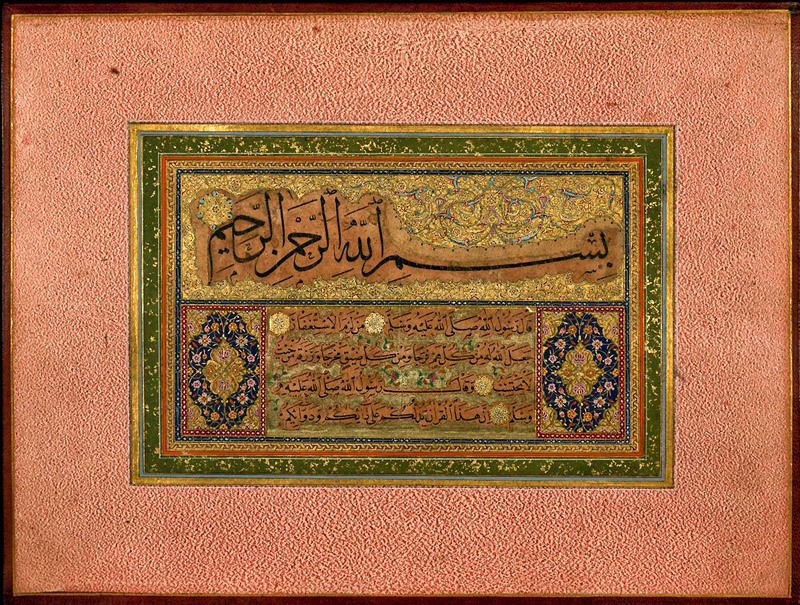 بِسْمِ اللهِ الرَّحْمٰنِ الرَّحِيمِ
قال رسول الله صلى الله عليه وسلم من لزم الاستغفار
جعل الله له من كل هم فرجا ومن كل ضيق مخرجا ورزقه من حيث
لا يحتسب وقال رسول الله صلى الله عليه
وسلم ان هذا القرآن يدلكم على دائكم ودوائكم